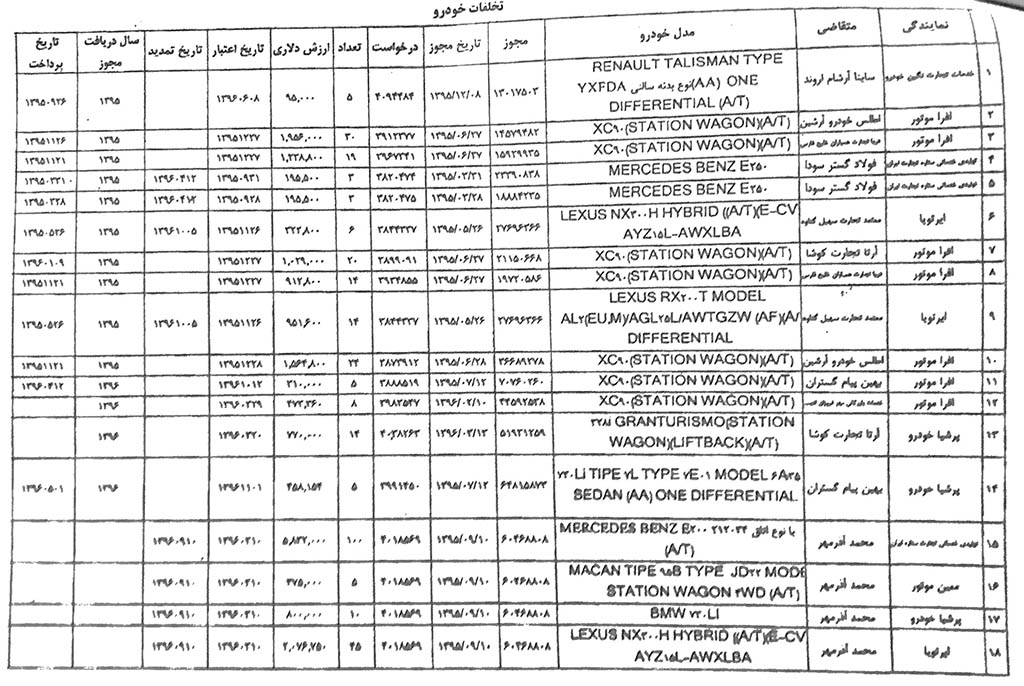 تخلفات خودرو
نمایندگی متقاضی مدل خودرو مجوز تاریخ مجوز درخواست تعداد ارزش دلاری تاریخ اعتبار تاریخ تمدید سال دریافت مجوز تاریخ پرداخت
۱ خدمات تجارت نگین خودرو ساینا آرشام اروند RENAULT TALISMAN TYPE
YXFDA نوع بدنه سالنی (AA) ONE
DIFFERENTIAL (A/T) ۱۳۰۱۷۵۰۳ ۱۳۹۵/۱۲/۰۸ ۴۰۹۴۴۸۴ ۵ ۹۵,۰۰۰ ۱۳۹۶۰۶۰۸ ۱۳۹۵ ۱۳۹۵۰۹۲۶
۲ افرا موتور اطلس خودرو آرشین XC۹۰(STATION WAGON)(A/T) ۱۴۵۷۹۴۸۲ ۱۳۹۵/۰۶/۲۷ ۳۹۱۲۳۷۷ ۳۰ ۱,۹۵۶,۰۰۰ ۱۳۹۵۱۲۲۷ ۱۳۹۵ ۱۳۹۵۱۱۲۶
۳ افرا موتور XC۹۰(STATION WAGON)(A/T) ۱۵۹۲۹۹۳۵ ۱۳۹۵/۰۶/۲۷ ۳۹۶۷۳۴۱ ۱۹ ۱,۲۳۸,۸۰۰ ۱۳۹۵۱۲۲۷ ۱۳۹۵ ۱۳۹۵۱۱۲۱
۴ فولاد گستر سودا MERCEDES BENZ E۲۵۰ ۲۳۳۹۰۸۳۸ ۱۳۹۵/۰۲/۳۱ ۳۸۲۰۴۷۴ ۳ ۱۹۵,۵۰۰ ۱۳۹۵۰۹۳۱ ۱۳۹۶۰۴۱۲ ۱۳۹۵ ۱۳۹۵۰۳۳۱۰
۵ فولاد گستر سودا MERCEDES BENZ E۲۵۰ ۱۸۸۸۴۲۳۵ ۱۳۹۵/۰۲/۲۸ ۳۸۲۰۴۷۵ ۳ ۱۹۵,۵۰۰ ۱۳۹۵۰۹۲۸ ۱۳۹۶۰۴۱۲ ۱۳۹۵ ۱۳۹۵۰۳۲۸
۶ ایرتویا معتمد تجارت سهیل گناوه LEXUS NX۳۰۰H HYBRID ((A/T)(E-CV
AYZ۱۵L-AWXLBA ۲۷۶۹۶۳۶۶ ۱۳۹۵/۰۵/۲۶ ۳۸۴۴۳۳۷ ۶ ۳۲۲,۸۰۰ ۱۳۹۵۱۱۲۶ ۱۳۹۶۱۰۰۵ ۱۳۹۵ ۱۳۹۵۰۵۲۶
۷ افرا موتور آرتا تجارت کوشا XC۹۰(STATION WAGON)(A/T) ۲۱۱۵۰۶۶۸ ۱۳۹۵/۰۶/۲۷ ۳۸۹۹۰۹۱ ۲۰ ۱,۰۲۹,۰۰۰ ۱۳۹۵۱۲۲۷ ۱۳۹۵ ۱۳۹۶۰۱۰۹
۸ افرا موتور XC۹۰(STATION WAGON)(A/T) ۱۹۷۲۰۵۸۶ ۱۳۹۵/۰۶/۲۷ ۳۹۳۴۸۵۵ ۱۴ ۹۱۲,۸۰۰ ۱۳۹۵۱۲۲۷ ۱۳۹۵ ۱۳۹۵۱۱۲۱
۹ ایرتویا معتمد تجارت سهیل گناوه LEXUS RX۲۰۰T MODEL
AL۲(EU,M)/AGL۲۵L/AWTGZW (AF)(A/
DIFFERENTIAL ۲۷۶۹۶۳۶۶ ۱۳۹۵/۰۵/۲۶ ۳۸۴۴۳۳۷ ۱۴ ۹۵۱,۶۰۰ ۱۳۹۵۱۱۲۶ ۱۳۹۶۱۰۰۵ ۱۳۹۵ ۱۳۹۵۰۵۲۶
۱۰ افرا موتور اطلس خودرو آرشین XC۹۰(STATION WAGON)(A/T) ۳۶۶۸۹۲۷۸ ۱۳۹۵/۰۶/۲۸ ۳۸۷۳۹۱۲ ۲۴ ۱,۵۶۴,۸۰۰ ۱۳۹۵۱۲۲۸ ۱۳۹۵ ۱۳۹۵۱۱۲۱
۱۱ افرا موتور بهین پیام گستران XC۹۰(STATION WAGON)(A/T) ۷۰۷۶۰۲۶۰ ۱۳۹۵/۰۷/۱۲ ۳۸۸۸۵۱۹ ۵ ۳۱۰,۰۰۰ ۱۳۹۶۱۰۱۲ ۱۳۹۶ ۱۳۹۶۰۴۱۲
۱۲ افرا موتور XC۹۰(STATION WAGON)(A/T) ۴۴۵۹۲۵۳۸ ۱۳۹۶/۰۲/۱۰ ۳۹۸۲۵۴۷ ۸ ۴۷۲,۳۶۰ ۱۳۹۶۰۳۲۹ ۱۳۹۶
۱۳ پرشیا خودرو آرتا تجارت کوشا ۳۲۸I GRANTURISMO(STATION
WAGON)(LIFTBACK)(A/T) ۵۱۹۳۱۲۵۹ ۱۳۹۶/۰۳/۱۳ ۴۰۳۸۲۶۳ ۱۴ ۷۷۰,۰۰۰ ۱۳۹۶۰۳۲۰ ۱۳۹۶
۱۴ پرشیا خودرو بهین پیام گستران ۷۳۰Li TIPE ۷L TYPE ۷E۰۱ MODEL ۶A۳۵
SEDAN (AA) ONE DIFFERENTIAL ۶۴۸۱۵۸۷۳ ۱۳۹۵/۰۷/۱۲ ۳۹۹۱۴۵۰ ۵ ۴۵۸,۱۵۴ ۱۳۹۶۱۱۰۱ ۱۳۹۶ ۱۳۹۶۰۵۰۱
۱۵ محمد آذرمهر MERCEDES BENZ E۲۰۰ ۲۱۲.۰۳۴ با نوع اتاق
(A/T) ۶۰۴۶۸۸۰۸ ۱۳۹۵/۰۹/۱۰ ۴۰۱۸۵۶۹ ۱۰۰ ۵,۸۳۲,۰۰۰ ۱۳۹۶۰۳۱۰ ۱۳۹۶۰۹۱۰
۱۶ معین موتور محمد آذرمهر MACAN TIPE ۹۵B TYPE JD۲۲ MODE
STATION WAGON ۴WD (A/T) ۶۰۴۶۸۸۰۸ ۱۳۹۵/۰۹/۱۰ ۴۰۱۸۵۶۹ ۵ ۳۷۵,۰۰۰ ۱۳۹۶۰۳۱۰ ۱۳۹۶۰۹۱۰
۱۷ پرشیا خودرو محمد آذرمهر BMW ۷۳۰LI ۶۰۴۶۸۸۰۸ ۱۳۹۵/۰۹/۱۰ ۴۰۱۸۵۶۹ ۱۰ ۸۰۰,۰۰۰ ۱۳۹۶۰۳۱۰ ۱۳۹۶۰۹۱۰
۱۸ ایرتویا محمد آذرمهر LEXUS NX۳۰۰H HYBRID ((A/T)(E-CV
AYZ۱۵L-AWXLBA ۶۰۴۶۸۸۰۸ ۱۳۹۵/۰۹/۱۰ ۴۰۱۸۵۶۹ ۴۵ ۲,۰۷۶,۷۵۰ ۱۳۹۶۰۳۱۰ ۱۳۹۶۰۹۱۰